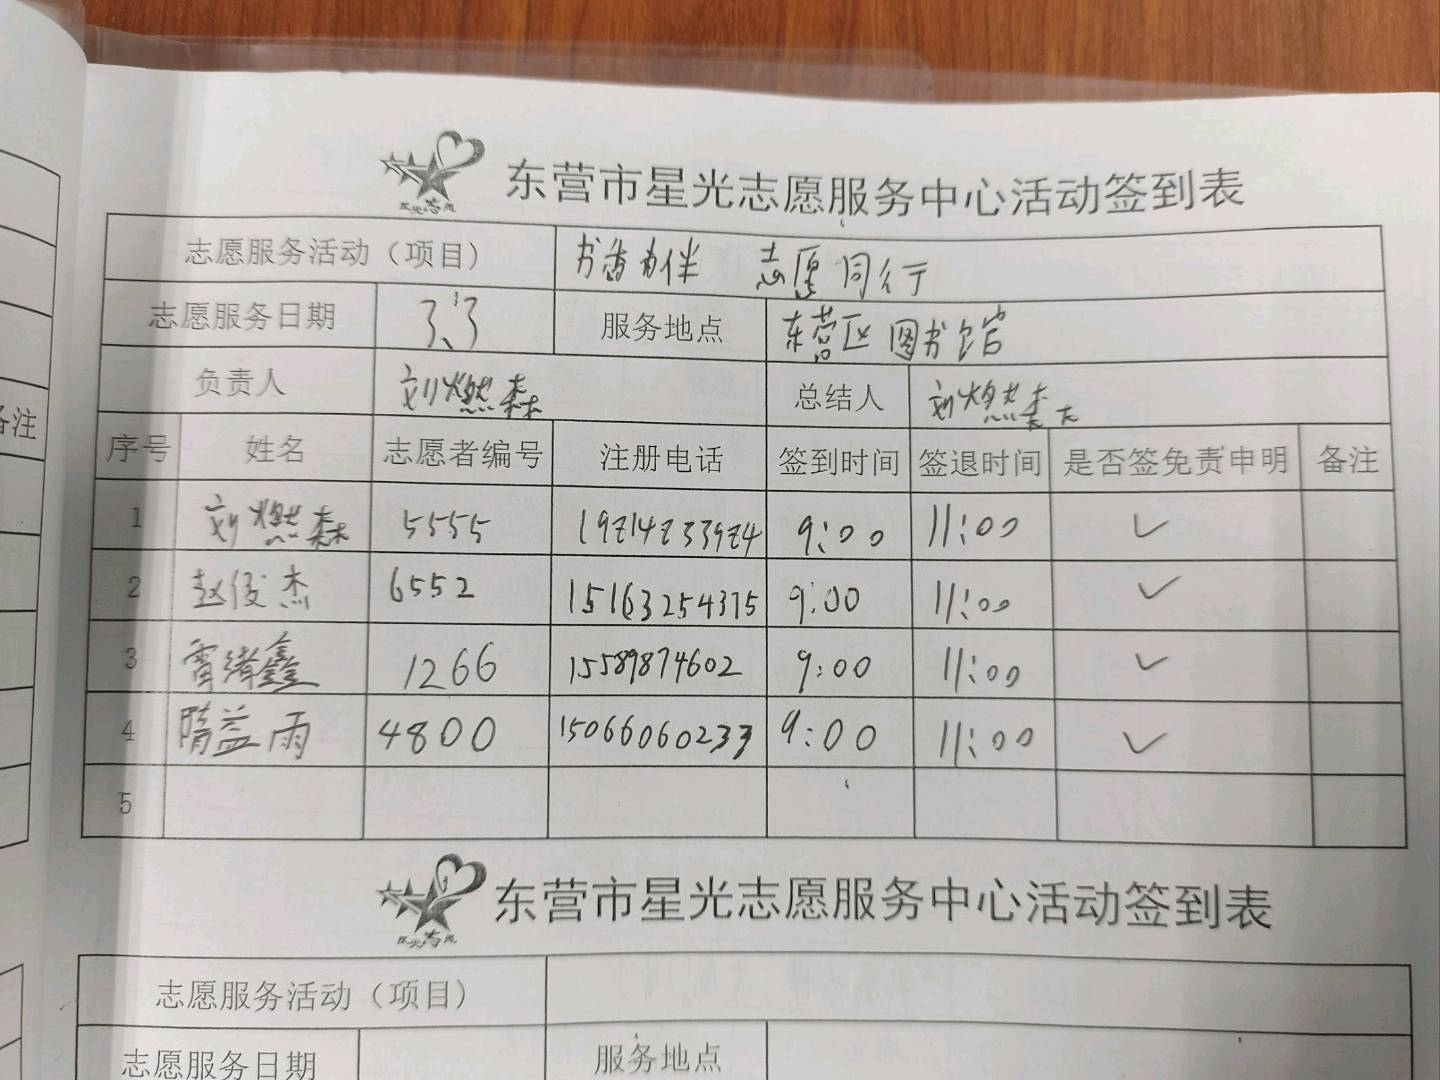 备注
星光志愿
东营市星光志愿服务中心活动签到表
志愿服务活动（项目） 书香为伴 志愿同行
志愿服务日期 3.3 服务地点 东营区图书馆
负责人 刘燃森 总结人 刘燃森
序号 姓名 志愿者编号 注册电话 签到时间 签退时间 是否签免责申明 备注
1 刘燃森 5555 9:00 11:00 ✓
2 赵俊杰 6552 15163254375 9:00 11:00 ✓
3 鑫 1266 15589874602 9:00 11:00 ✓
4 隋益雨 4800 15066060233 9:00 11:00 ✓
5
星光志愿
东营市星光志愿服务中心活动签到表
志愿服务活动（项目）
志愿服务日期 服务地点